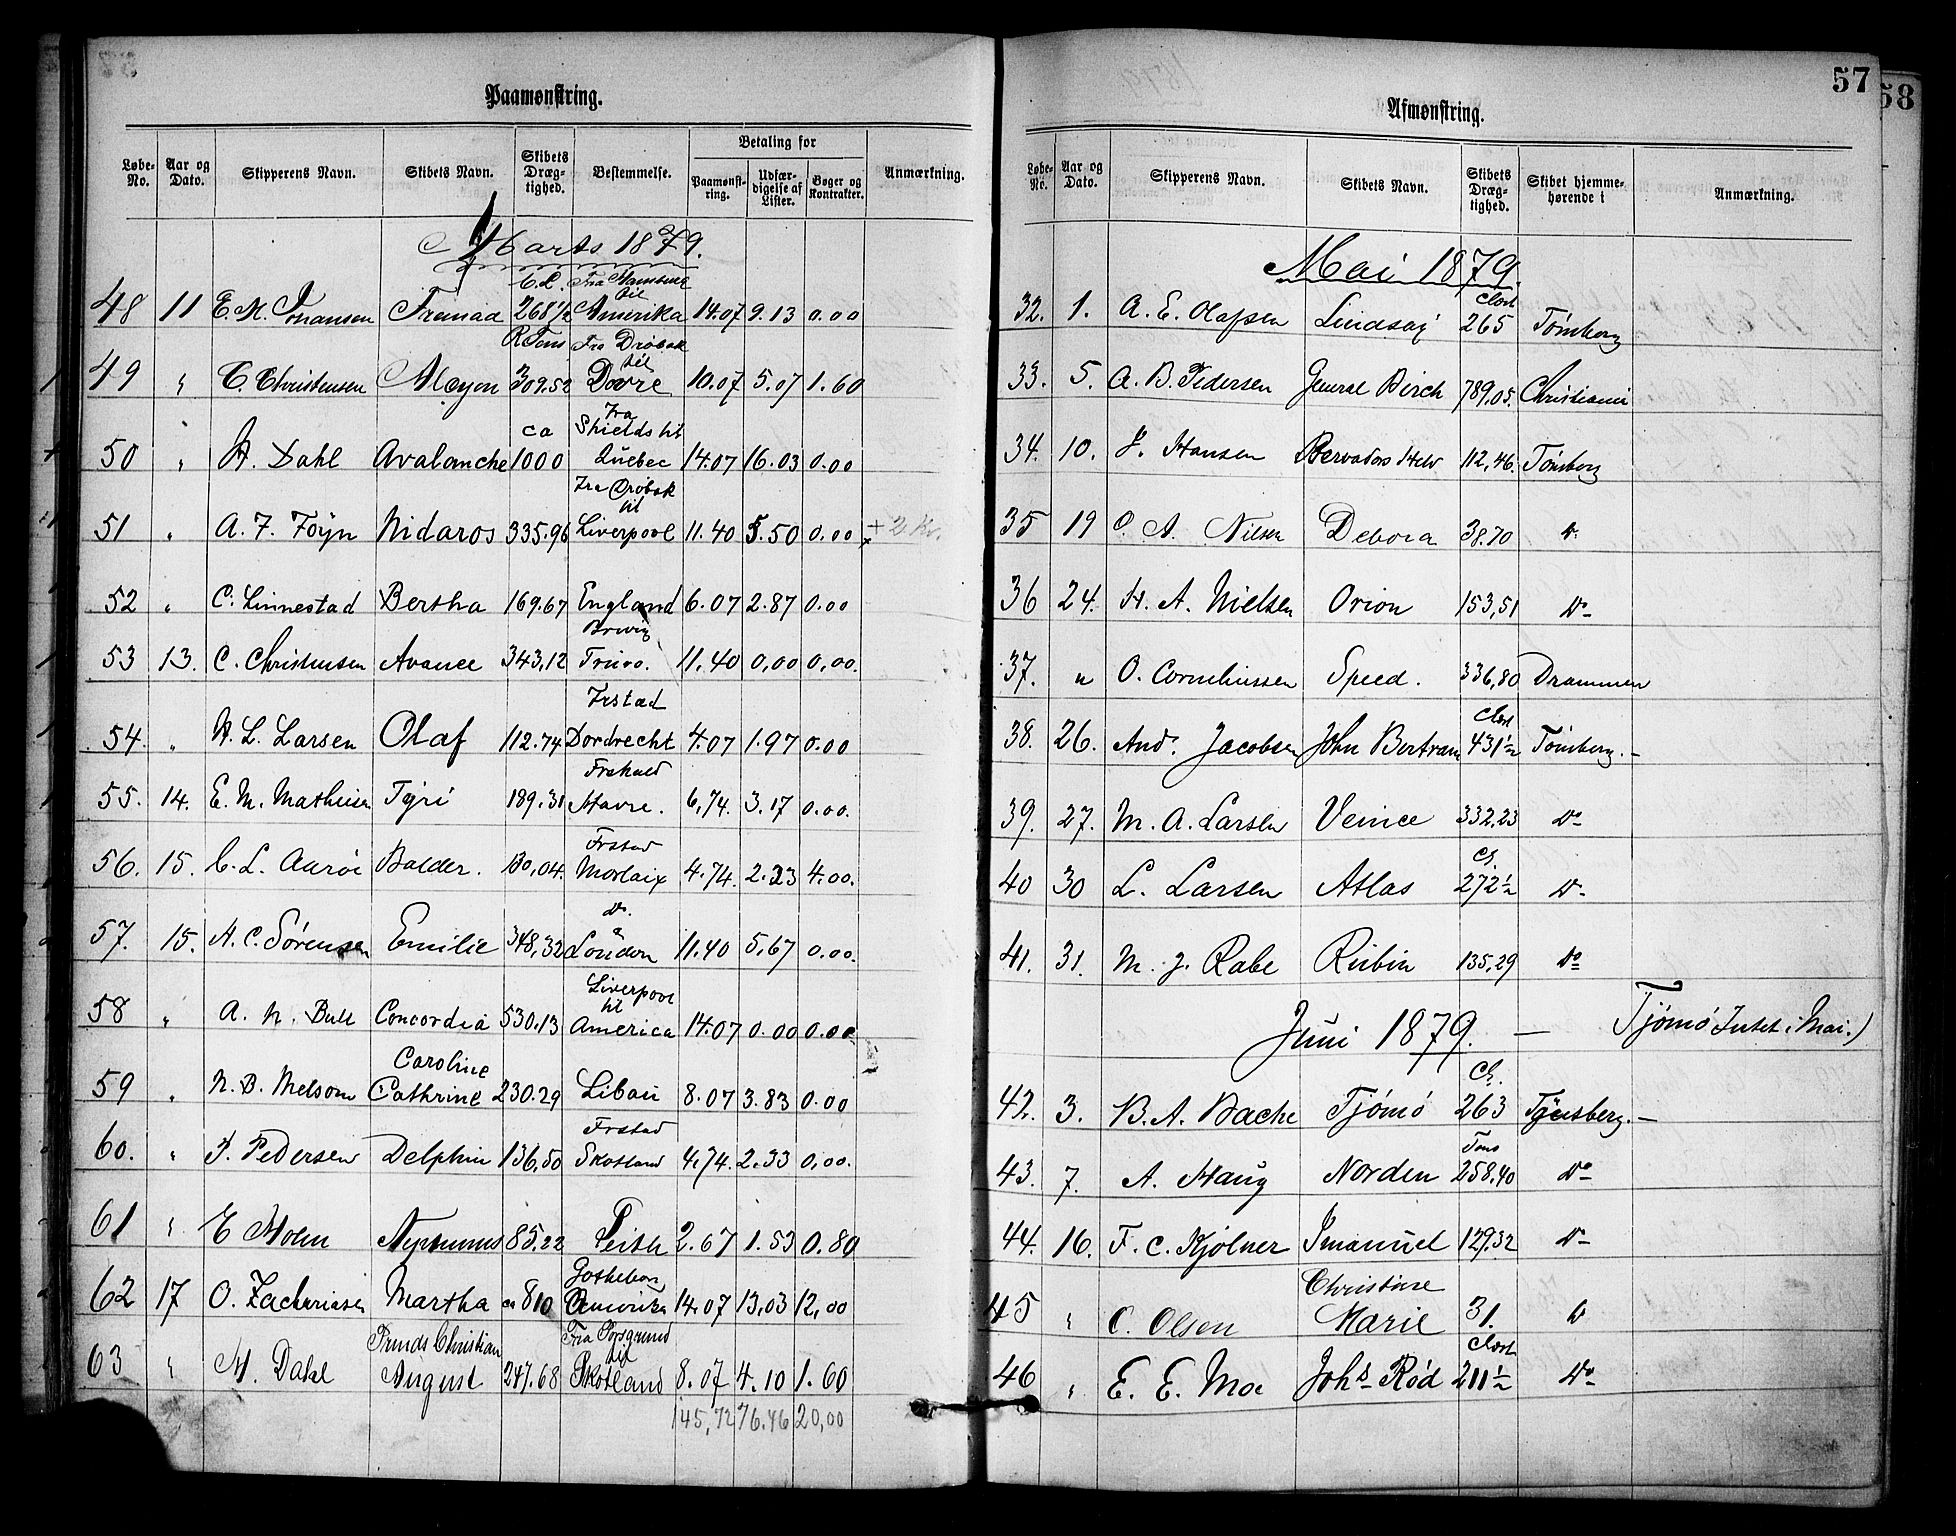 Paamønstring.
Løbe-No. Aar og Dato. Skipperens Navn. Skibets Navn. Skibets Dræg-tighed. Bestemmelse. Betaling for Paamønst-ring. Udfær-digelse af Lister. Bøger og Kontrakter. Anmærkning.
Marts 1879.
C.L. Fra Hamburg til
48 11 E. M. Johansen 268 1/2 Amerika 14.07 9.13 0.00
R Tons Fra Drøbak til
49 " C. Christensen Alcyon 309.52 Dovre 10.07 5.07 1.60
ca Fra Shields til
50 " H. Dahl Avalanche 1000 Quebec 14.07 16.03 0.00
Fra Drøbak til
51 " A. F. Föyn Nidaros 335.96 Liverpool 11.40 5.50 0.00 + 2 Kr.
52 " C. Linnestad Bertha 169.67 England 6.07 2.87 0.00
53 13. C. Christensen Avance 343,12 11.40 0,00 0,00.
54. " H. L. Larsen Olaf 112.74 Dordrecht 4.07 1.97 0.00
55. 14. E. M. Mathisen Tyri 189.31 Havre. 6,74. 3.17 0.00.
Frstad
56. 15. C. L. Aarøe Balder. 130,04. Morlaix 4.74. 2.23 4.00.
Do.
57. 15. A. C. Sörensen Emilie 348,32 London 11.40 5,67 0.00.
Liverpool til
58 " A. N. Bull Concordia 530.13 America 14.07 0.00 0.00
Caroline
59 " N. B. Melsom Cathrine 230.29 Libau 8.07 3.83 0.00
Frstad
60. " Pedersen Delphin 136,50 Skotland 4.74. 2.33 0,00.
61 " E Holm Neptunus 85.22 Leith 2.67 1.53 0.80
Gothebor
62 17 O. Zachariasen Martha ca 810 Amerika 14.07 13,03 12,00
Prinds Christian Fra Porsgrund til
63 " M. Dahl August 247.68 Skotland 8.07 4.10 1.60
145,72 76.46 20,00
57
58
Afmønstring.
Løbe-No. Aar og Dato. Skipperens Navn. Skibets Navn. Skibets Dræg-tighed. Skibet hjemme-hørende i Anmærkning.
Mai 1879.
Clst
32. 1. A. E. Olafsen Lindsay 265 Tönsberg
33. 5. A. B. Pedersen General Birch 789,05. Christiania
34. 10. J. Hansen 112,46. Tönsberg
35 19 O. A. Nilsen Debora 38.70 Do
36 24. H. A. Nielsen Orion 153,51 Do
37. " O. Corneliussen Speed. 336,80 Drammen
Clst
38. 26. And. Jacobsen John Bertram 431 1/2 Tönsberg.-
39. 27. M. A. Larsen Venice 332,23 Do
Cl.
40 30 L. Larsen Atlas 272 1/2 Do
41. 31. M. J. Rabe Rubin 135,29 Do
Juni 1879. — Tjømø Intet i Mai.)
Cl.
42. 3. B. A. Bache Tjömö 263 Tönsberg.-
Tons
43. 7. A. Haug Norden 258.40 Do
44. 16. F. C. Kjölner Imanuel 129.32 Do
Christine
45 " C. Olsen Marie 31. Do
Clst
46 " E. E. Moe Johs Röd 211 1/2 Do